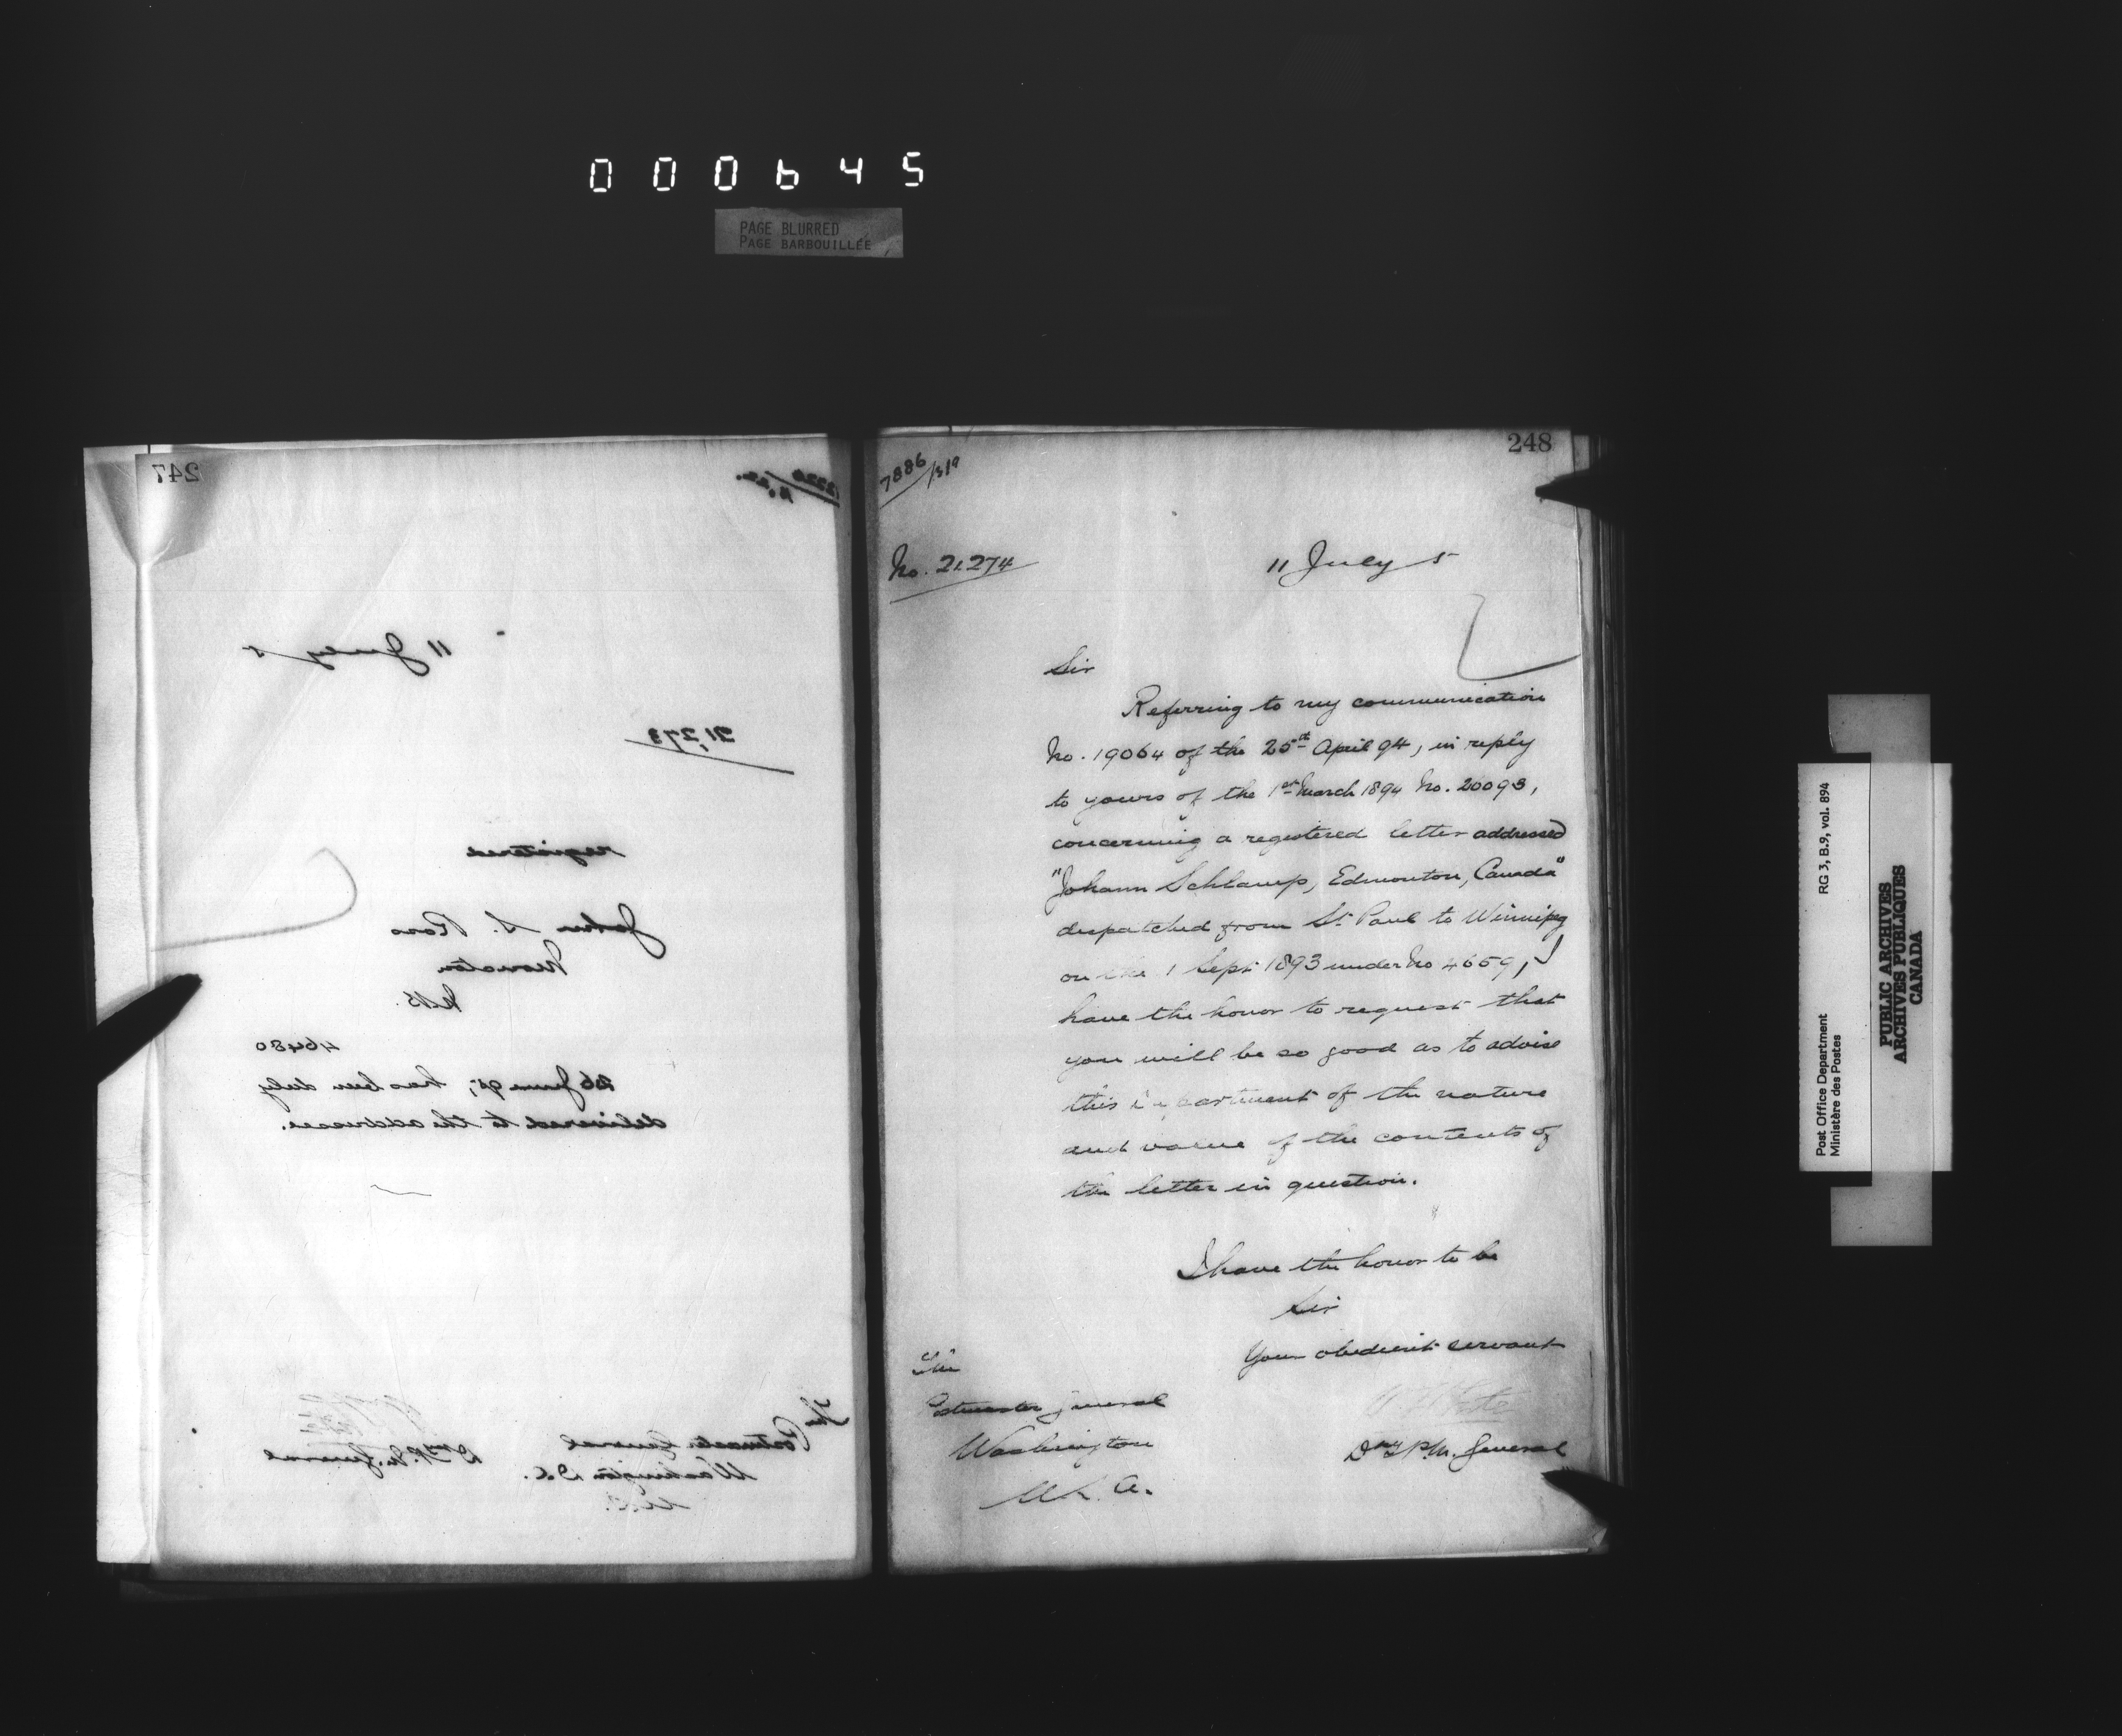 000645
PAGE BLURRED
PAGE BARBOUILLÉE
247
11 July 5
21,273
registered
John S. Ross
Moncton
N.B.
46480
26 June 95, has been duly
delivered to the addressee.
The Postmaster General
Washington D.C.
Dy P.M. General
248
7886/319
No. 21.274
11 July 5
Sir
Referring to my communication
No. 19064 of the 25th April 94, in reply
to yours of the 1st March 1894 No. 20093,
concerning a registered letter addressed
"Johann Schlamp, Edmonton, Canada"
despatched from St. Paul to Winnipeg
on the 1 Sept 1893 under No 4659, I
have the honor to request that
you will be so good as to advise
this department of the nature
and value of the contents of
the letter in question.
I have the honor to be
Sir
Your obedient servant
Dy P.M. General
The
Postmaster General
Washington
U.S.A.
Post Office Department
Ministère des Postes
RG 3, B.9, vol. 894
PUBLIC ARCHIVES
ARCHIVES PUBLIQUES
CANADA